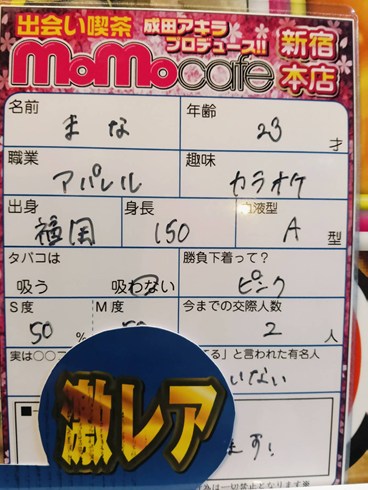 出会い喫茶 成田アキラ プロデュース!! 新宿本店
MoMocafe
名前 まな 年齢 23 才
職業 アパレル 趣味 カラオケ
出身 福岡 身長 150 血液型 A 型
タバコは 吸う 吸わない 勝負下着って? ピンク
S度 50 % M度 今までの交際人数 2 人
実は○○フ てる」と言われた有名人 いない
激レア
ます!
為は一切禁止となります